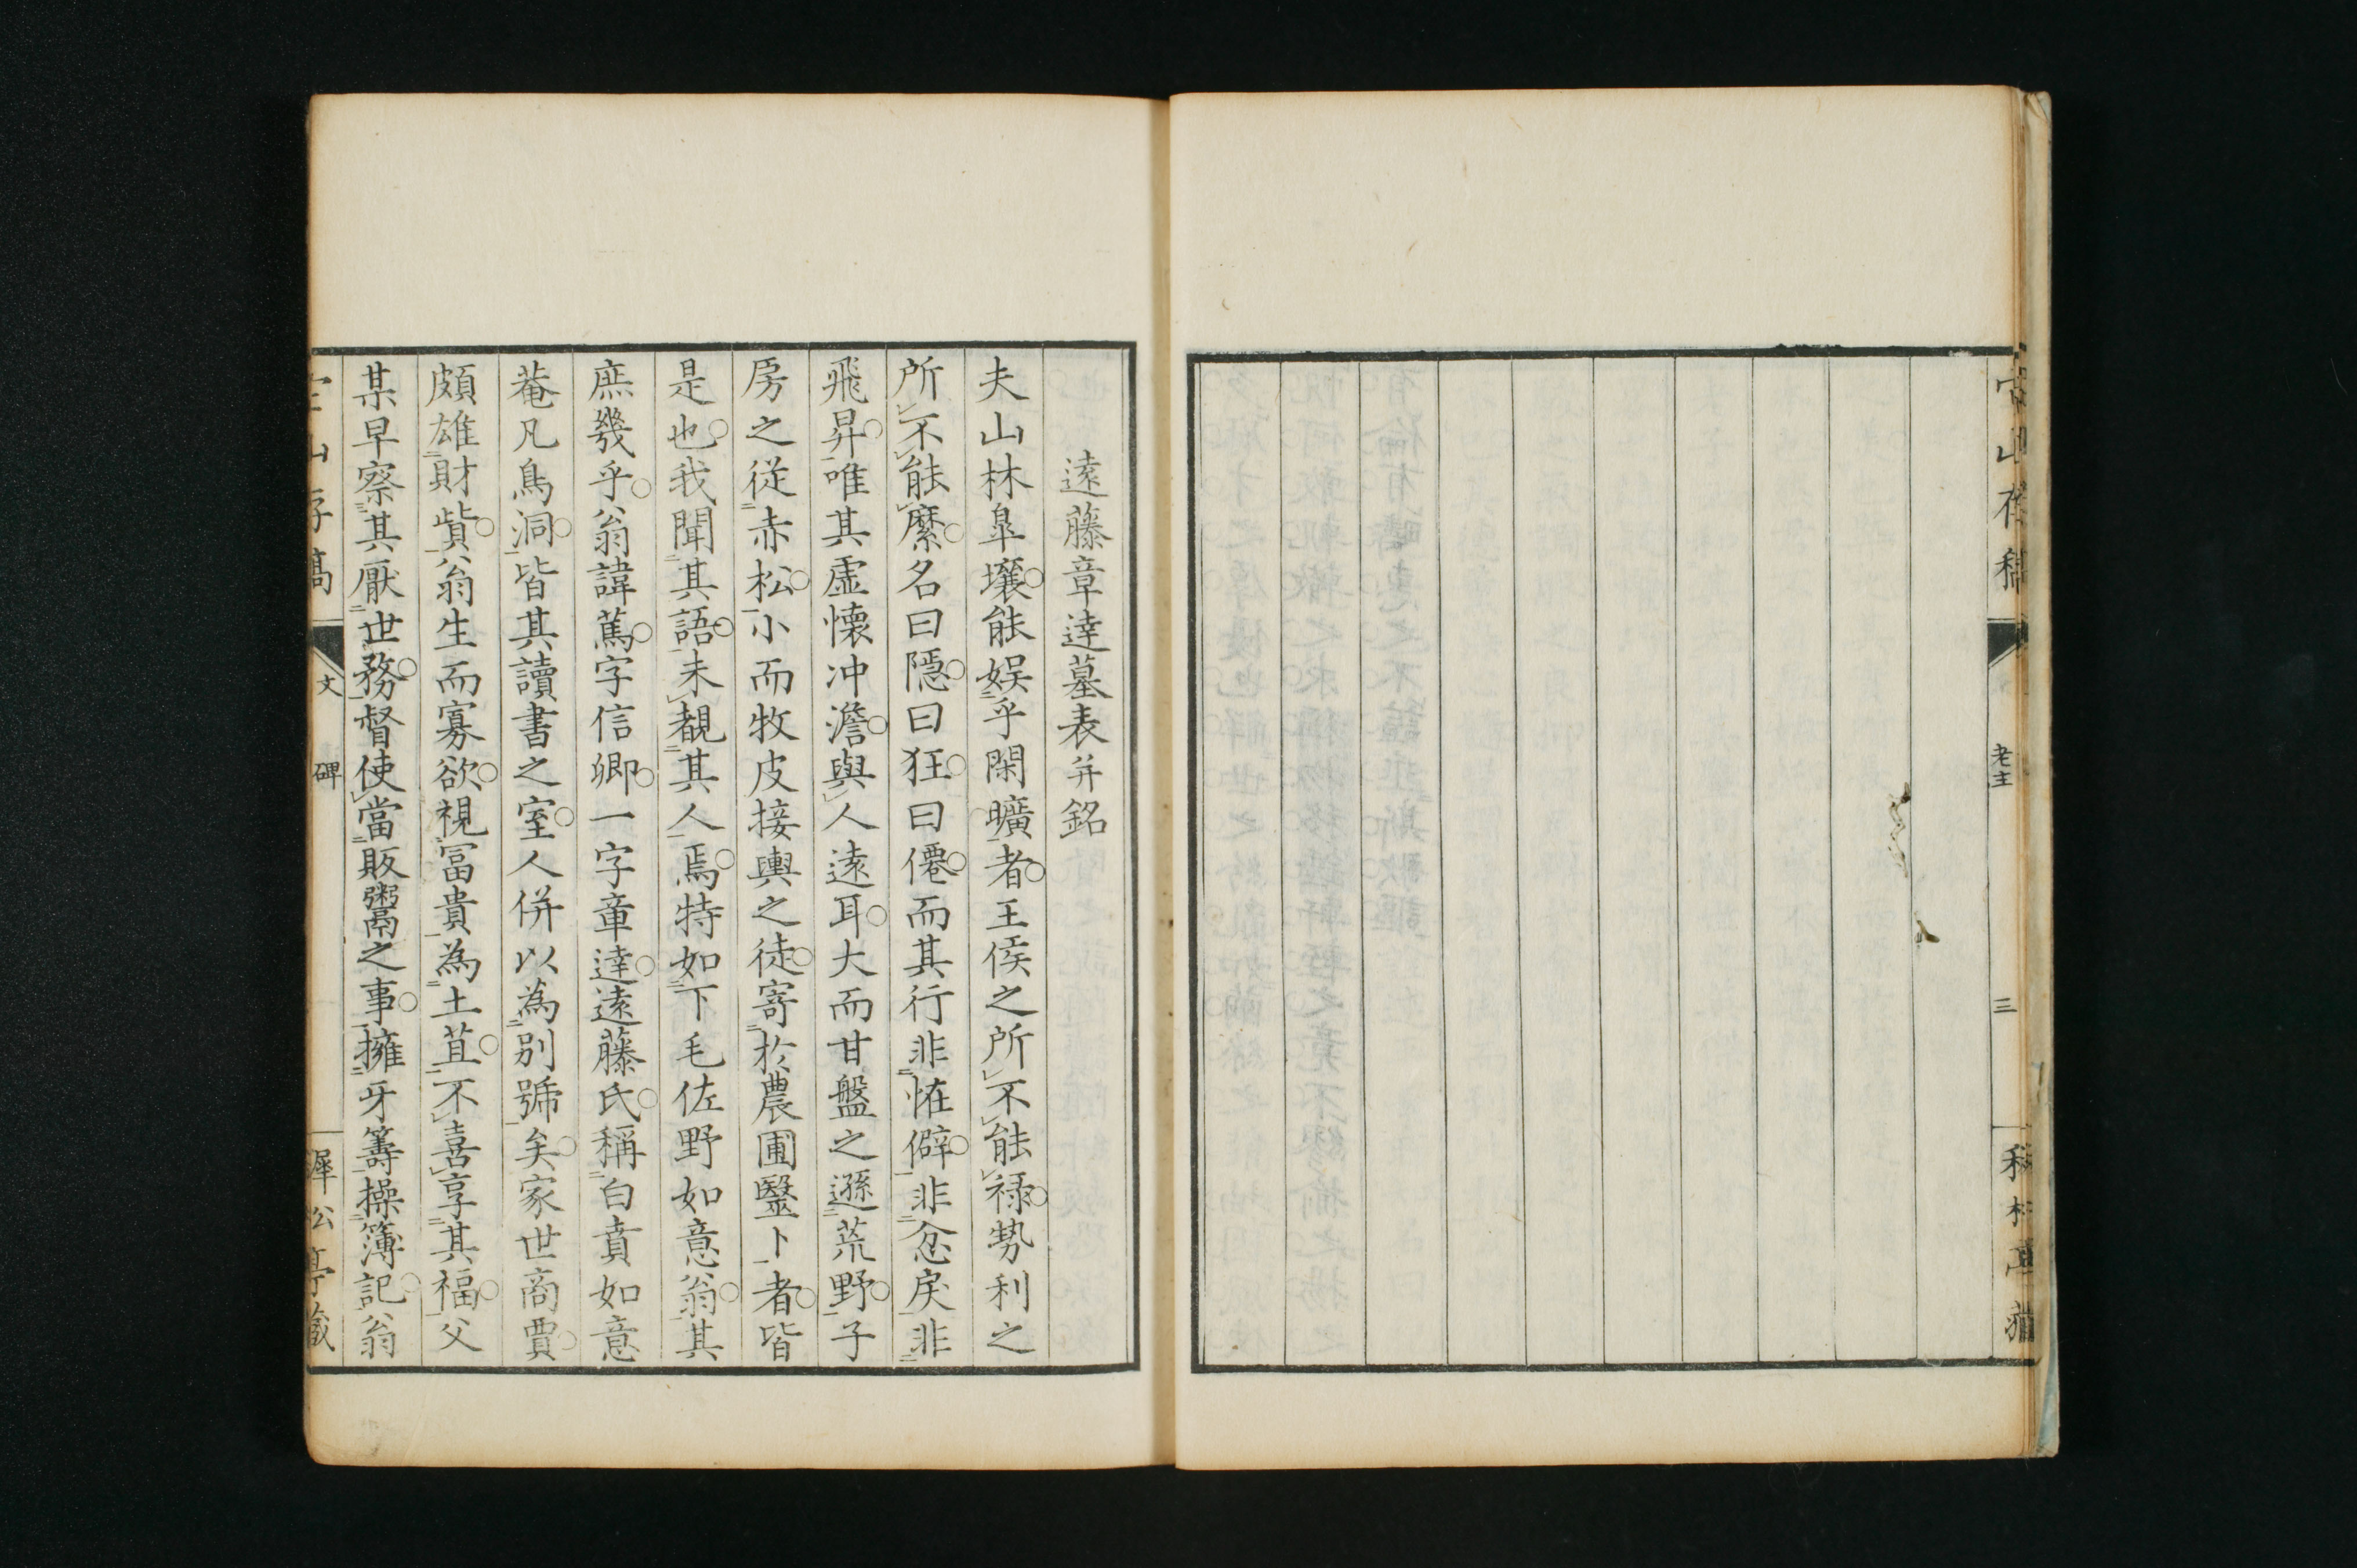 老主
三
遠藤章達墓表并銘
夫山林臯壤能娯乎閑曠者王侯之所不能祿勢利之
所不能縻名曰隱曰狂曰僊而其行非恠僻非忿戾非
飛昇唯其虛懷冲澹與人遠耳大而甘盤之遜荒野子
房之從赤松小而牧皮接輿之徒寄於農圃毉卜者皆
是也我聞其語未覩其人焉特如下毛佐野如意翁其
庶幾乎翁諱篤字信卿一字章達遠藤氏稱白賁如意
菴凡鳥洞皆其讀書之室人併以為別號矣家世商賈
頗雄財貲翁生而寡欲視冨貴為土苴不喜享其福父
某早察其厭世務督使當販鬻之事擁牙籌操簿記翁
文
碑